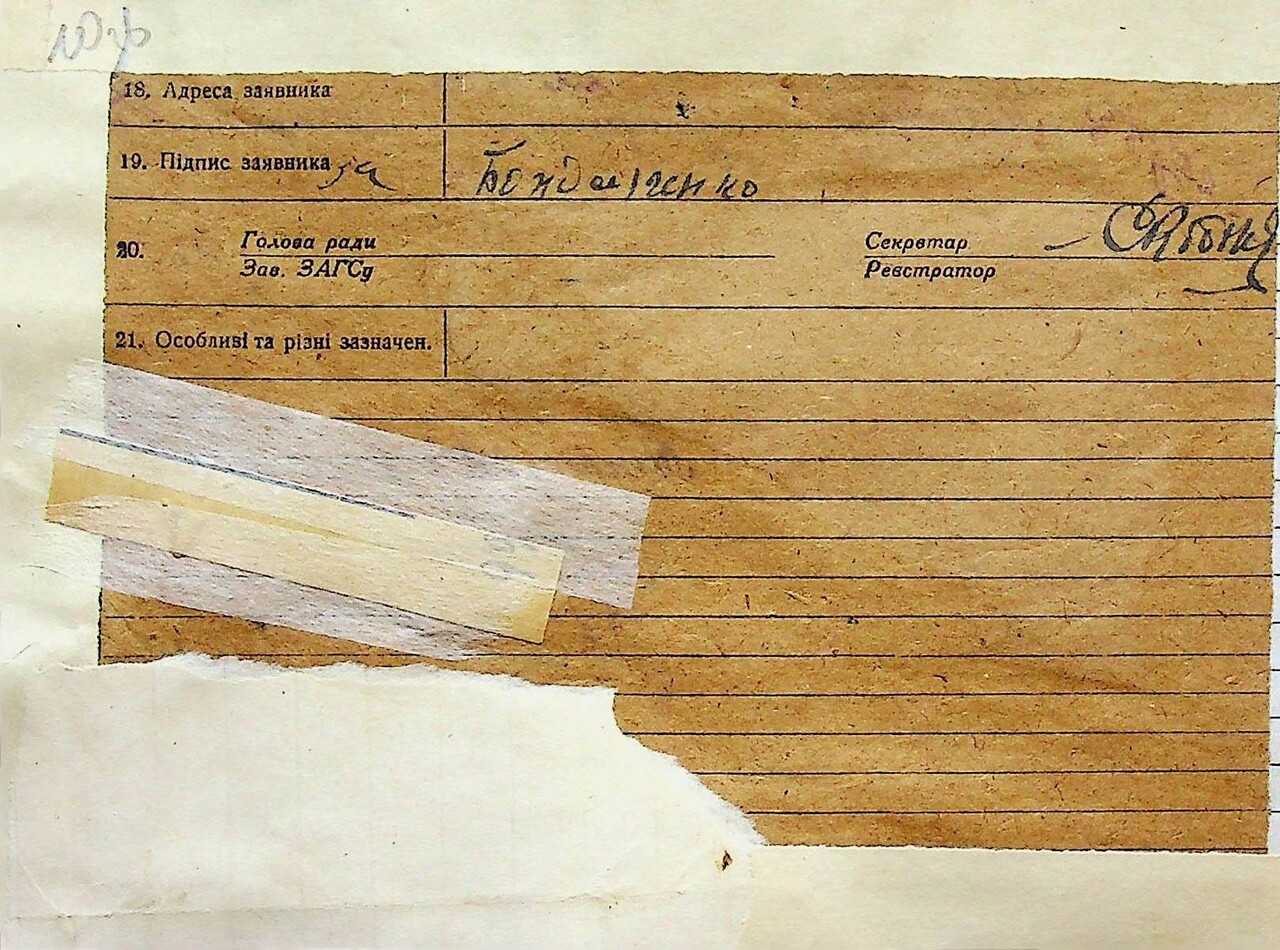 18. Адреса заявника
19. Підпис заявника за Бондаренко
20. Голова ради Секретар
Зав. ЗАГСу Реєстратор
21. Особливі та різні зазначен.